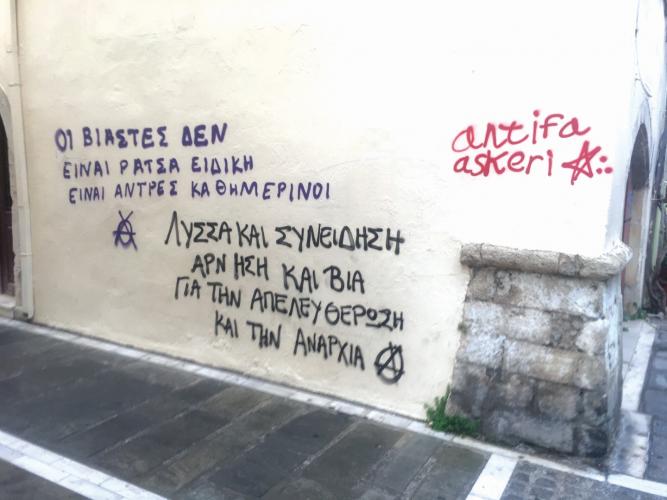 ΟΙ ΒΙΑΣΤΕΣ ΔΕΝ
ΕΙΝΑΙ ΡΑΤΣΑ ΕΙΔΙΚΗ
ΕΙΝΑΙ ΑΝΤΡΕΣ ΚΑΘΗΜΕΡΙΝΟΙ
ΛΥΣΣΑ ΚΑΙ ΣΥΝΕΙΔΗΣΗ
ΑΡΝΗΣΗ ΚΑΙ ΒΙΑ
ΓΙΑ ΤΗΝ ΑΠΕΛΕΥΘΕΡΩΣΗ
ΚΑΙ ΤΗΝ ΑΝΑΡΧΙΑ
antifa
askeri